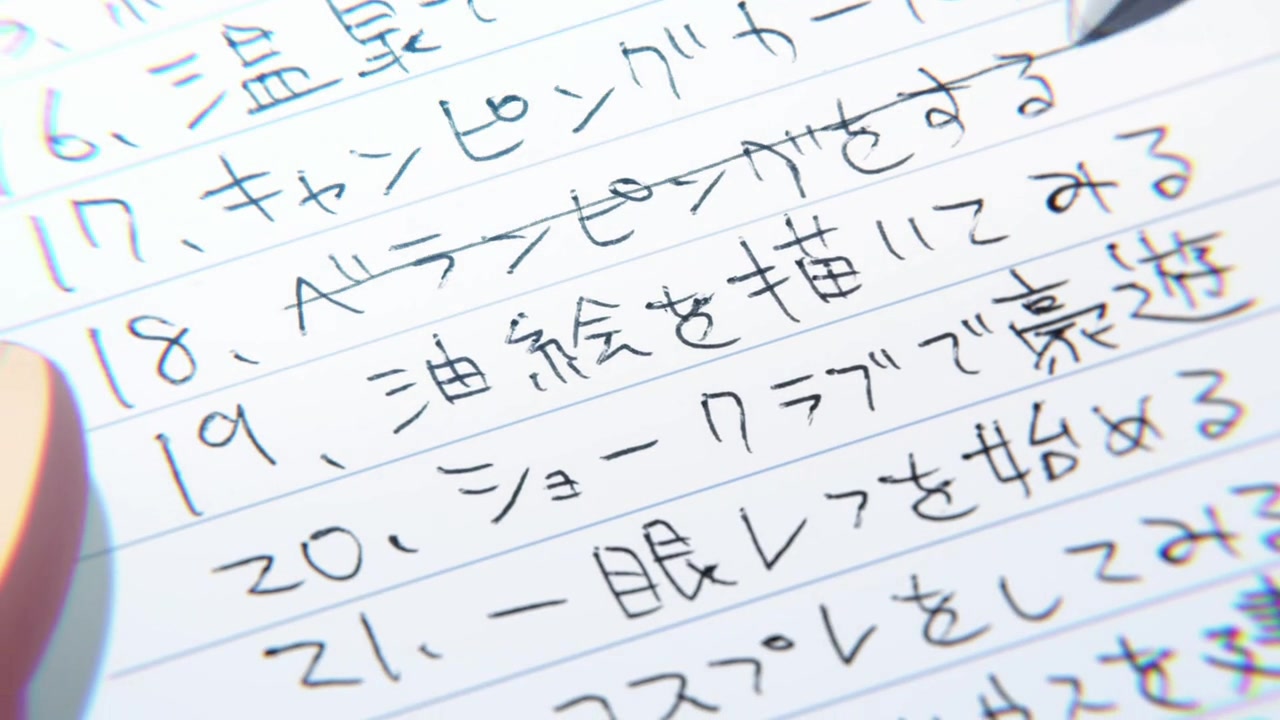 6、温泉
17、キャンピングカー
18、ベランピングをする
19、油絵を描いてみる
20、ショークラブで豪遊
21、一眼レフを始める
コスプレをしてみる
スを